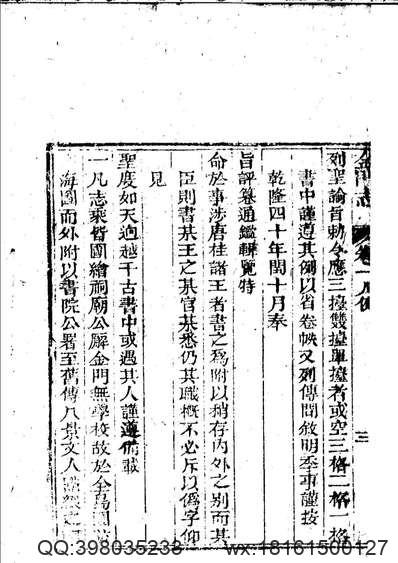 金門志 卷一 凡例 三
列聖諭旨勅令應三擡雙擡單擡者或空三格二格一格
書中謹遵其例以省卷帙又列傳間敘明季事謹按
乾隆四十年閏十月奉
旨評纂通鑑輯覽特
命於事涉唐桂諸王者書之為附以稍存內外之別而其
臣則書某王之某官某悉仍其職概不必斥以偽字仰
見
聖度如天逈越千古書中或遇其人謹遵備載
一凡志乘皆圖繪祠廟公廨金門無學校故於全島圖
海圖而外附以書院公署至舊傳八景文人
QQ:398035238 wx:18161500127